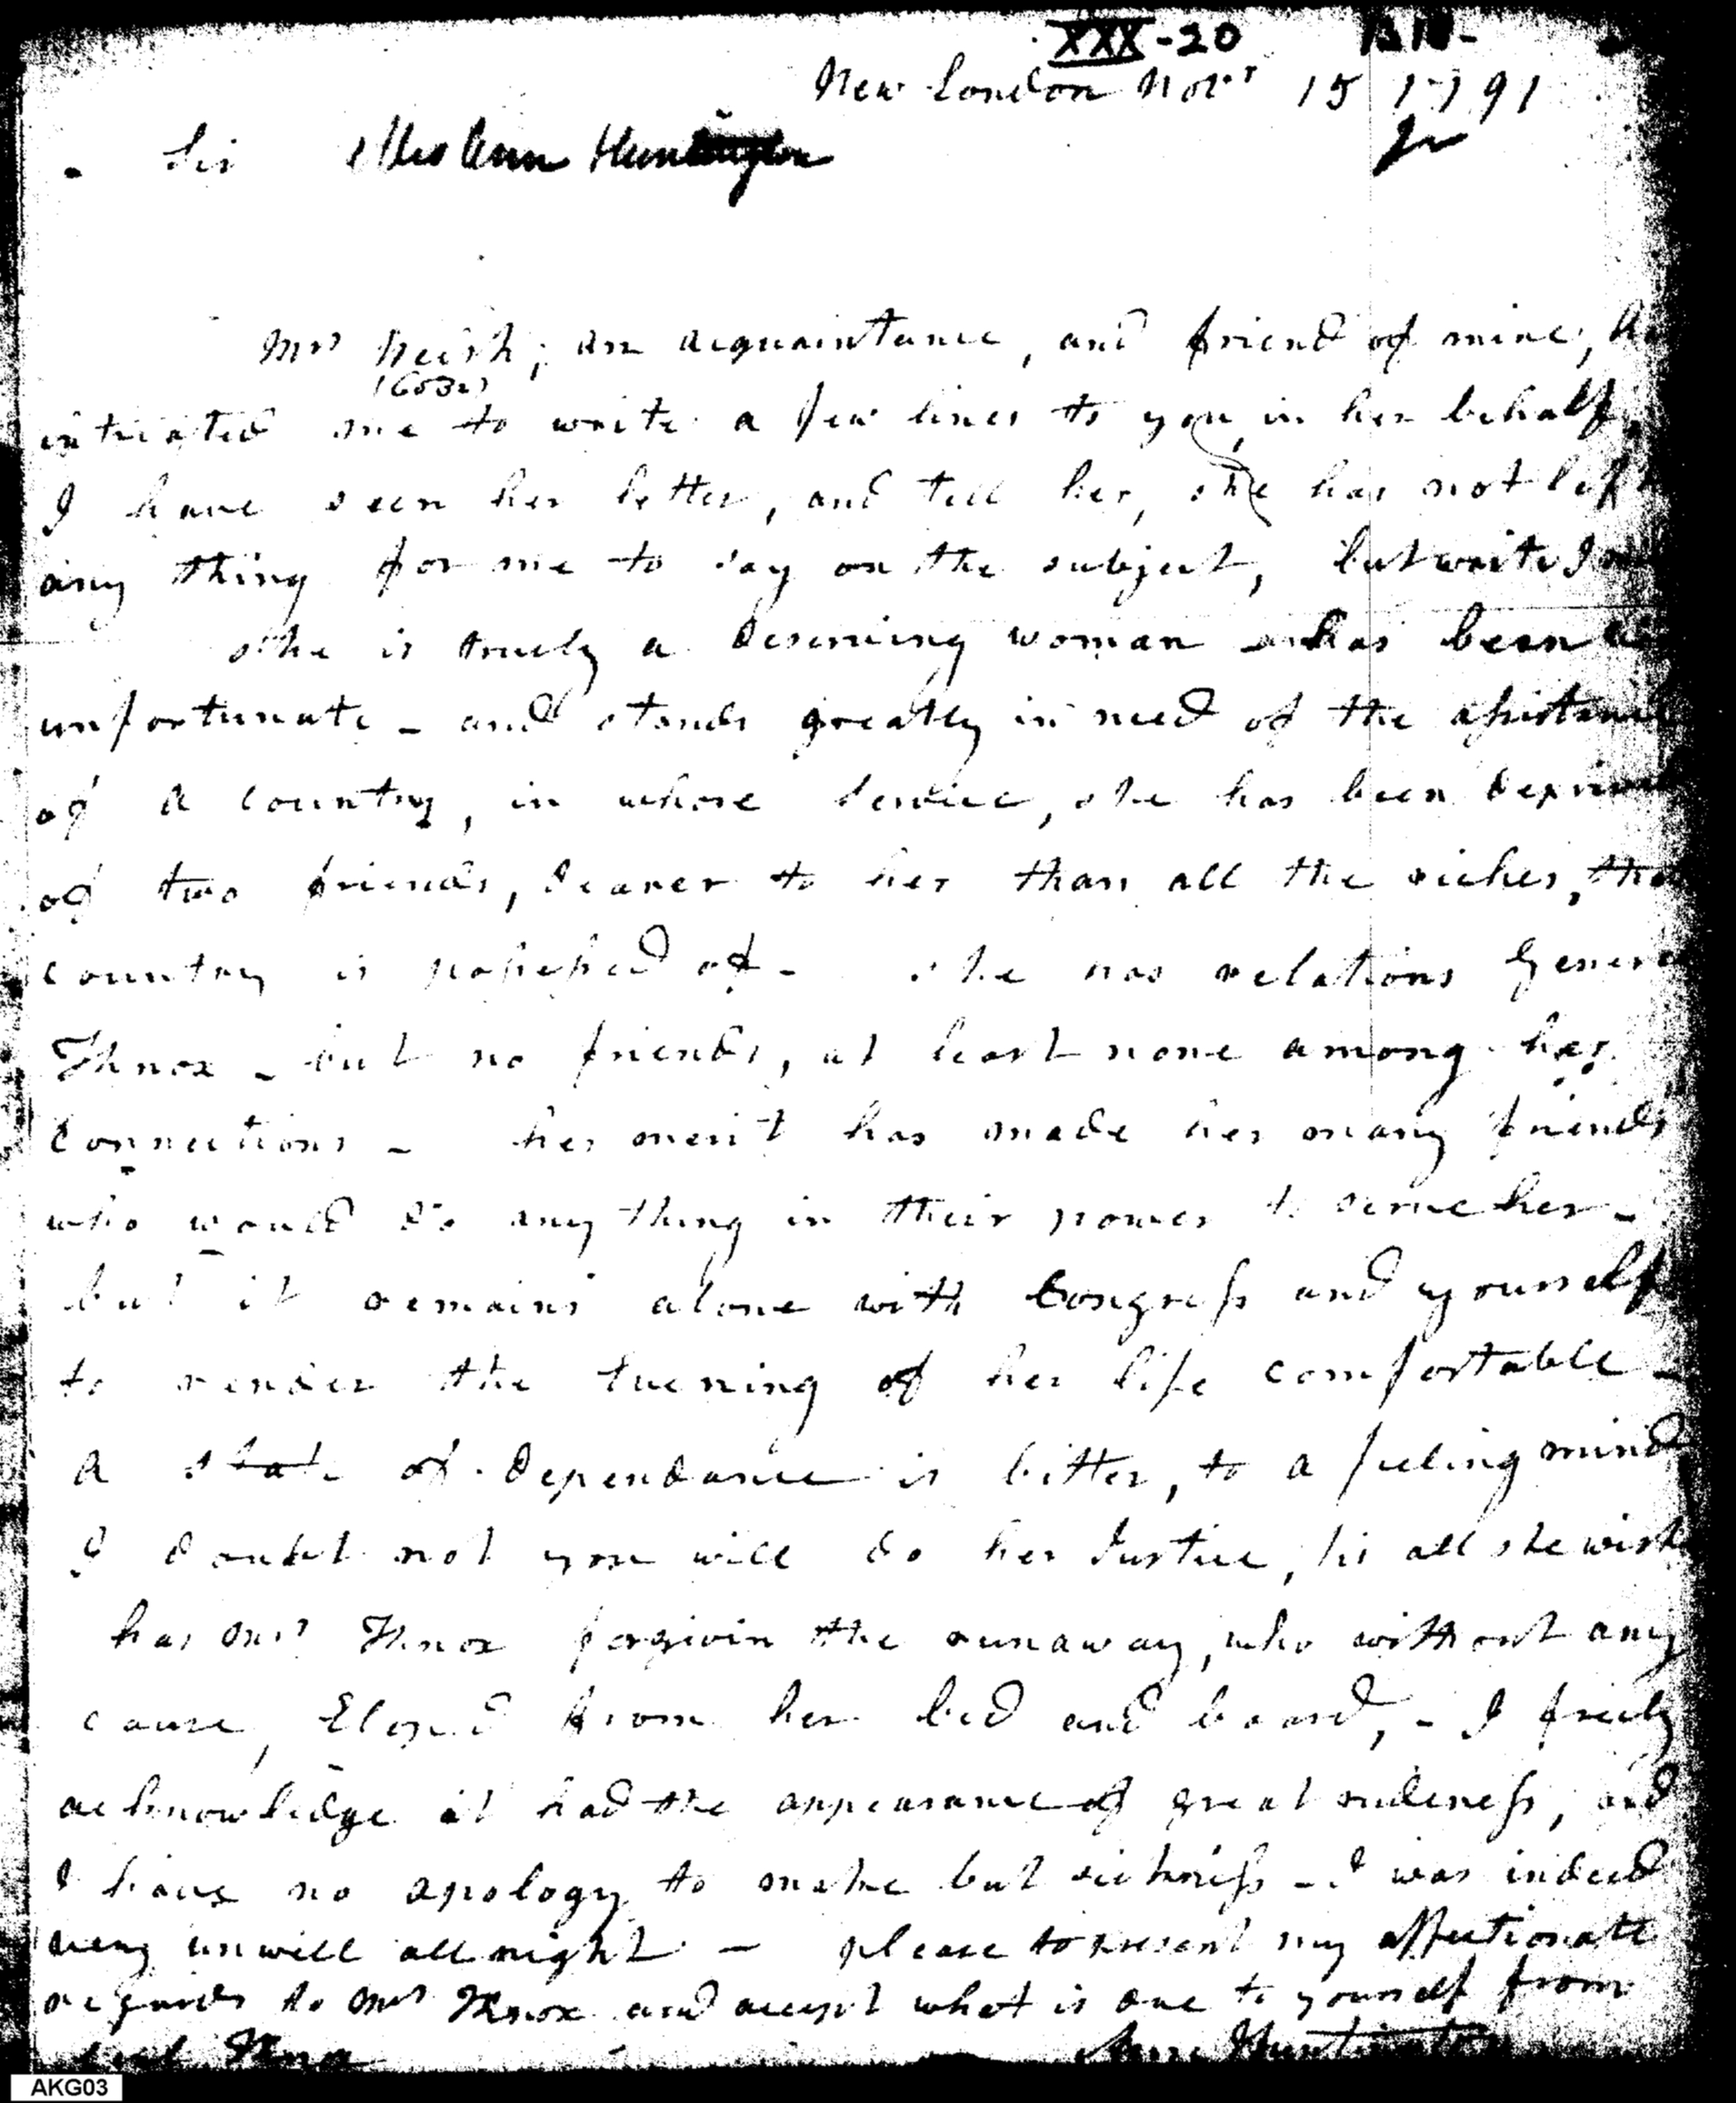 XXX-20
New London Novr 15 1791
Sir Mrs Ann Huntington
Mrs ; an acquaintance, and friend of mine,
intriated me to write a few lines to you, in her behalf,
I have seen her letter, and tell her, she has not left
any thing for me to say on the subject, but write I
She is truely a deserving woman and has been
unfortunate - and stands greatly in need of the assistance
of a country, in whose service, she has been depriv
of two friends, dearer to her than all the riches, the
country is possessed of - she has relations General
Knox - but no friends, at least none among her
connections - her merit has made her many friends
who would do any thing in their power to serve her -
but it remains alone with Congress and yourself
to render the Evening of her life comfortable -
a state of dependance is bitter, to a feeling mind
I doubt not you will do her Justice, tis all she wish
has Mrs Knox forgivin the runaway, who without any
cause, Eloped from her bed and board, - I freely
acknowledge it had the appearance of great rudeness, and
I have no apology to make but sickness - I was indeed
very unwell all night - please to present my affectionate
regards to Mrs Knox and accept what is due to yourself from
Knox Ann Huntington
AKG03